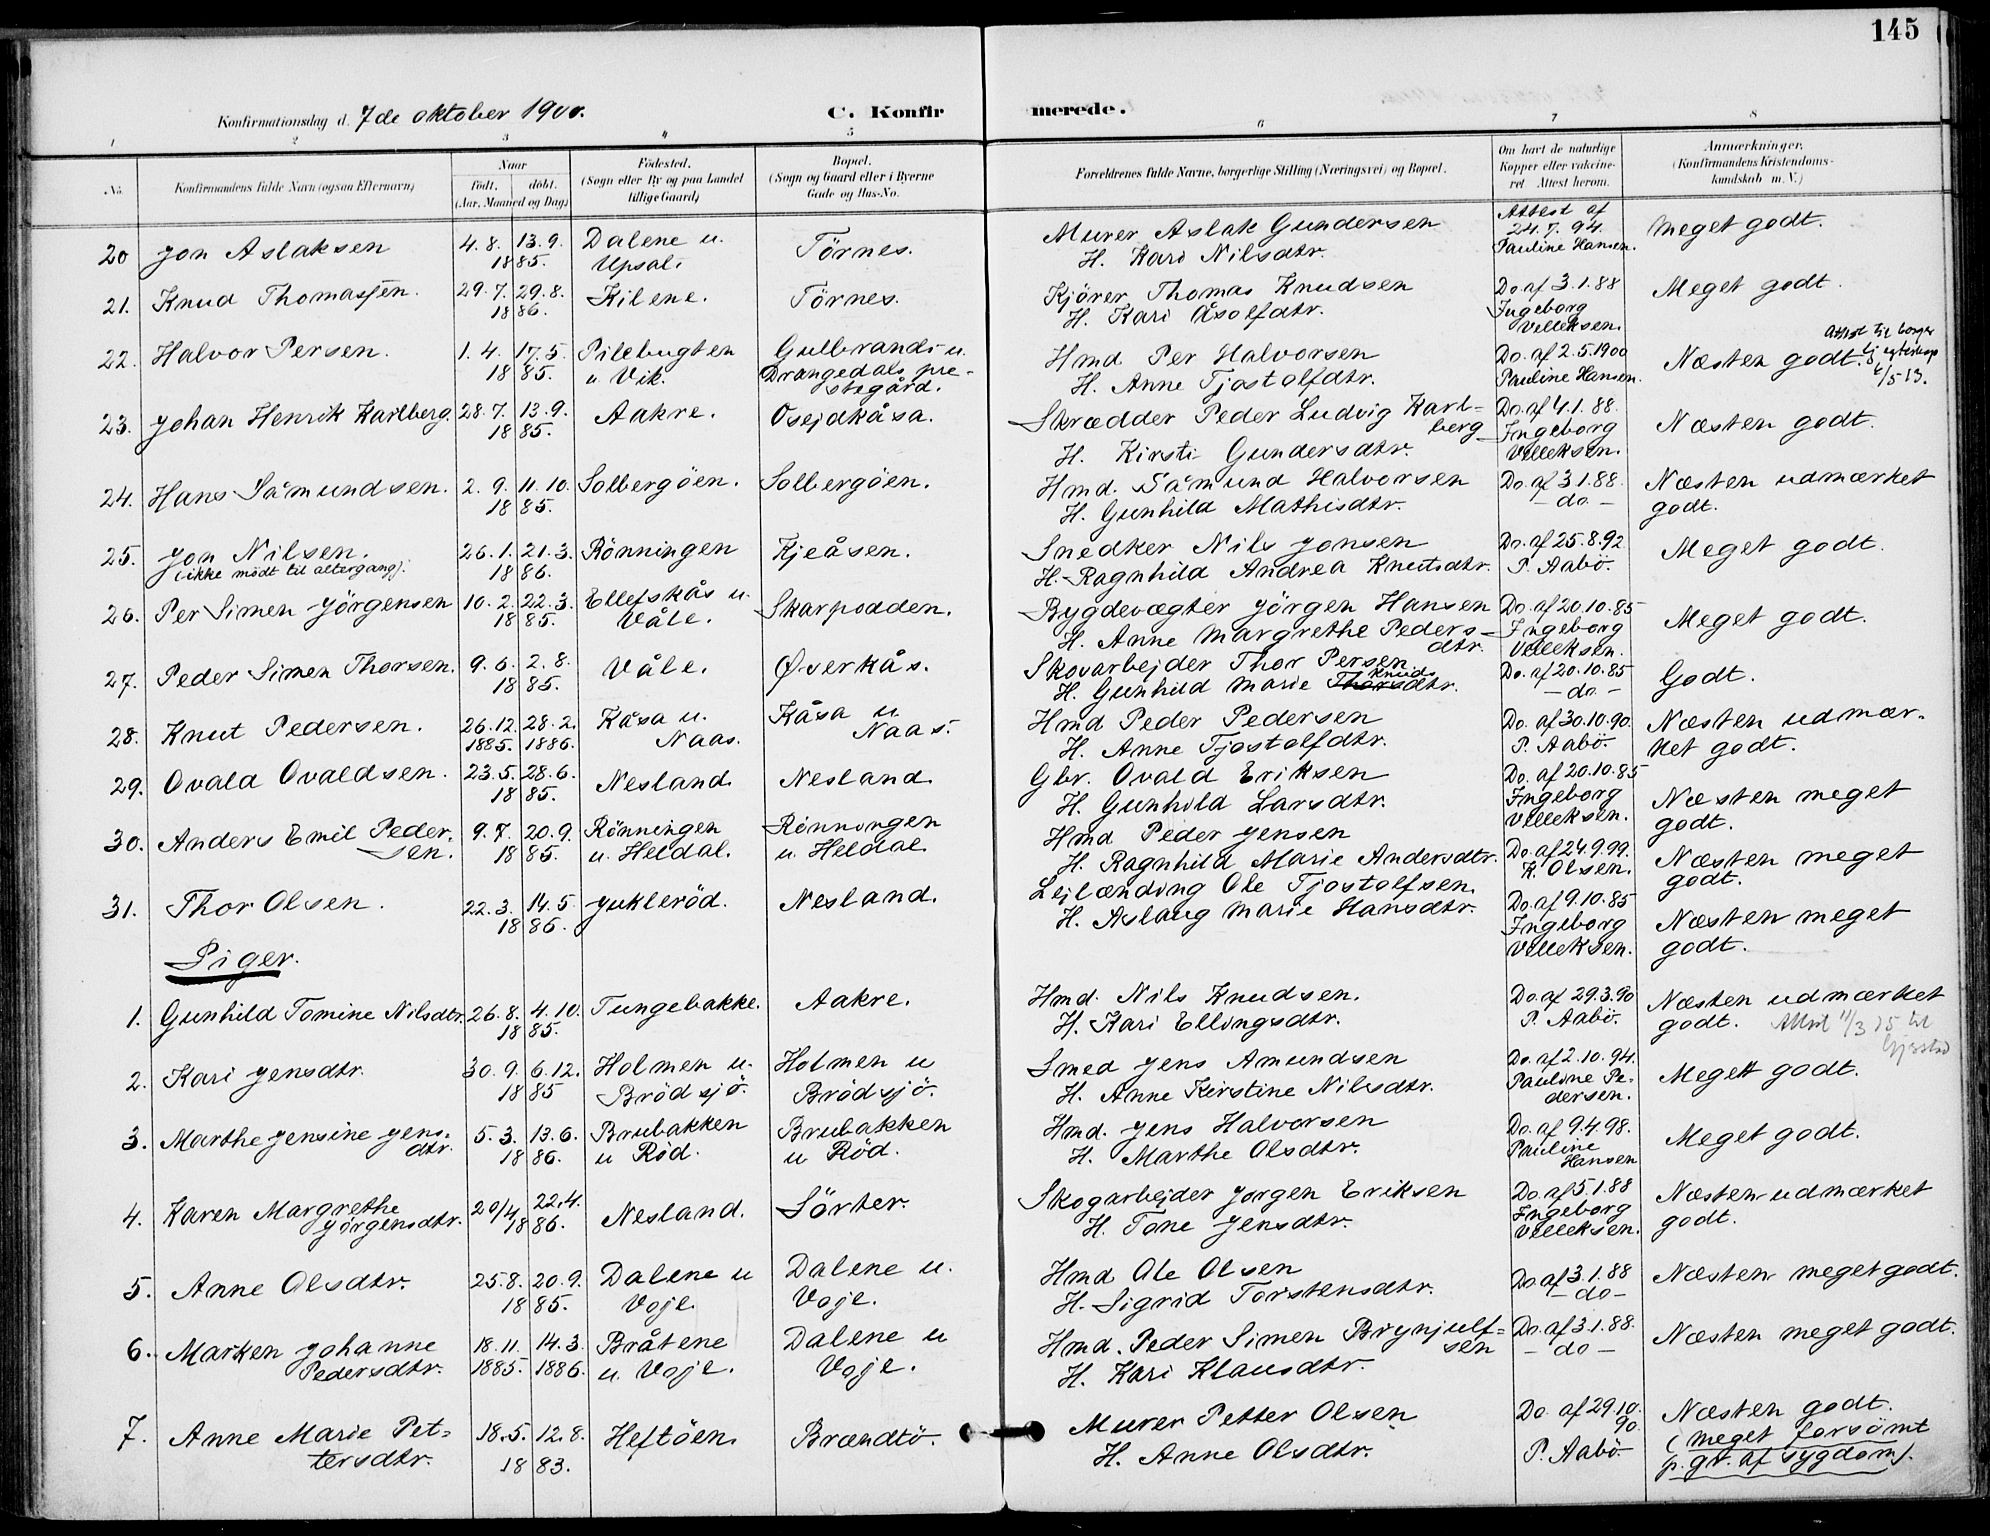 145
Konfirmationsdag d. 7de oktober 1900.
C. Konfir merede.
1 2 3 4 5 6 7 8
No.
Konfirmandens fulde Navn (ogsaa Efternavn)
Naar
født. døbt.
(Aar, Maaned og Dag)
Fødested.
(Sogn eller By og paa Landet
tillige Gaard)
Bopæl.
(Sogn og Gaard eller i Byerne
Gade og Hus-No.
Forældrenes fulde Navne, borgerlige Stilling (Næringsvei) og Bopæl.
Om havt de naturlige
Kopper eller vakcine-
ret Attest herom.
Anmærkninger.
(Konfirmandens Kristendoms-
kundskab m. V.)
20 Jon Aslaksen 4.8. 13.9. 1885. Dalene u. Upsal. Törnes. Murer Aslak Gundersen
H. Kari Nilsdtr. Attest af 24.7.94. Pauline Hansen. Meget godt.
21. Knud Thomassen. 29.7. 29.8. 1886. Kilene. Törnes. Kjörer Thomas Knudsen
H. Kari Åsolfdtr. Do. af 3.1.88 Ingeborg Velleksen. Meget godt.
22. Halvor Persen. 1.4. 17.5. 1885. Pilebugten u Vik. Gulbrands u. Drangedals pre-stegård. Hmd Per Halvorsen
H. Anne Tjostolfdtr. Do. af 2.5.1900 Pauline Hansen. Næsten godt. Attest til borger lj egteskap /5 13.
23. Johan Henrik Karlberg. 28.7. 13.9. 1885. Aakre. Osejdkåsa. Skrædder Peder Ludvig Karl-berg
H. Kirsti Gundersdtr. Do. af 4.1.88. Ingeborg Velleksen. Næsten godt.
24. Hans Såmundsen. 2.9. 11.10. 1885. Solbergöen. Solbergöen. Hmd. Såmund Halvorsen
H. Gunhild Mathisdtr. Do. af 3.1.88. – do – Næsten udmærket godt.
25. Jon Nilsen. (ikke mödt til altergang). 26.1. 21.3. 1886. Rönningen Kjeåsen. Snedker Nils Jonsen
H. Ragnhild Andrea Knutsdtr. Do. af 25.8.92 P. Aabö. Meget godt.
26. Per Simen Jörgensen 10.2. 22.3. 1885. Ellefskås u. Våle. Skarpodden. Bygdevægter Jörgen Hansen
H. Anne Margrethe Peders-dtr. Do. af 20.10.85 Ingeborg Velleksen. Meget godt.
27. Peder Simen Thorsen. 9.6. 2.8. 1885. Våle. Øverkås. Skovarbejder Thor Persen
H. Gunhild Marie Thors Knudsdtr. Do. af 20.10.85 – do – Godt.
28. Knut Pedersen. 26.12. 1885. 28.2. 1886. Kåsa u. Naas. Kåsa u Naas. Hmd Peder Pedersen
H. Anne Tjostolfdtr. Do. af 30.10.90. P. Aabö. Næsten udmær-ket godt.
29. Ovald Ovaldsen. 23.5. 28.6. 1885. Nesland. Nesland. Gbr. Ovald Eriksen
H. Gunhild Larsdtr. Do. af 20.10.85 Ingeborg Velleksen. Næsten meget godt.
30. Anders Emil Peder-sen. 9.7. 20.9. 1885. Rönningen u. Heldal. Rönningen u. Heldal. Hmd Peder Jensen
H. Ragnhild Marie Andersdtr. Do. af 24.9.99. K. Olsen. Næsten meget godt.
31. Thor Olsen. 22.3. 14.5. 1886. Jukleröd. Nesland. Lejlænding Ole Tjostolfsen.
H. Aslaug Marie Hansdtr. Do. af 9.10.85 Ingeborg Velleksen. Næsten meget godt.
Piger.
1. Gunhild Tomine Nilsdtr. 26.8. 4.10. 1885. Tungebakke. Aakre. Hmd. Nils Knudsen.
H. Kari Ellingsdtr. Do. af 29.3.90 P. Aabö. Næsten udmærket godt. Attest 11/3 15 til Gjerstad
2. Kari Jensdtr. 30.9. 6.12. 1885 Holmen u. Brödsjö. Holmen u Brödsjö. Smed Jens Amundsen
H. Anne Kirstine Nilsdtr. Do. af 2.10.94. Pauline Pe-dersen. Meget godt.
3. Marthe Jensine Jens-dtr. 5.3. 13.6. 1886. Brubakken u Röd. Brubakken u Röd. Hmd. Jens Halvorsen
H. Marthe Olsdtr. Do. af 9.4.98. Pauline Hansen Meget godt.
4. Karen Margrethe Jörgensdtr. 20/4 22.4. 1886. Nesland. Sörter. Skogarbejder Jörgen Eriksen
H. Tone Jensdtr. Do. af 5.1.88 Ingeborg Velleksen. Næsten udmærket godt.
5. Anne Olsdtr. 25.8. 20.9. 1885. Dalene u Voje. Dalene u. Voje. Hmd Ole Olsen
H. Sigrid Torstensdtr. Do. af 3.1.88 – do – Næsten meget godt.
6. Marken Johanne Pedersdtr. 18.11. 1885. 14.3. 1886. Bråtene u. Voje. Dalene u Voje. Hmd. Peder Simen Brynjulf-sen
H. Kari Klausdtr. Do. af 3.1.88. – do – Næsten meget godt.
7. Anne Marie Pet-tersdtr. 18.5. 12.8. 1883. Heftöen. Brændtö. Murer Petter Olsen
H. Anne Olsdtr. Do af 29.10.90. P. Aabö. Næsten godt. (meget forsömt p. gr. af sygdom).